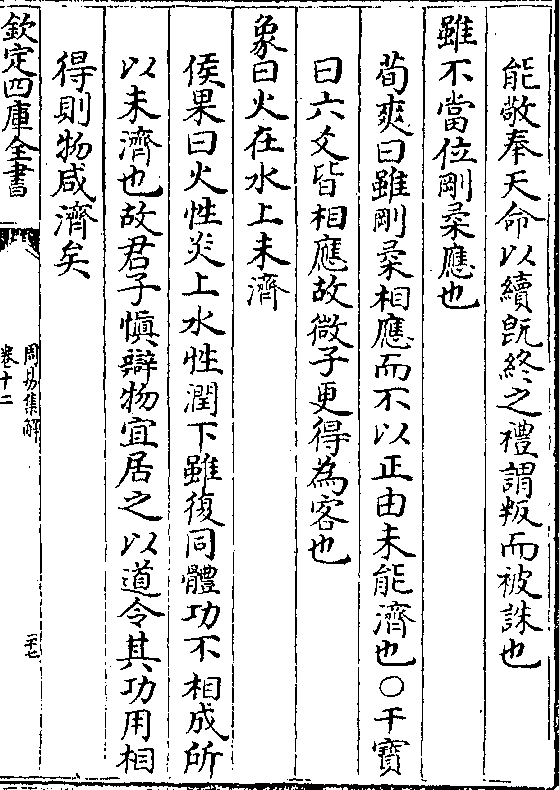 能敬奉天命以續旣終之禮謂叛而被誅也
雖不當位剛柔應也
荀爽曰雖剛柔相應而不以正由未能濟也○干寶
曰六爻皆相應故微子更得為客也
象曰火在水上未濟
侯果曰火性炎上水性潤下雖復同體功不相成所
以未濟也故君子慎辯物宜居之以道令其功用相
得則物咸濟矣
欽定四庫全書
周易集解
卷十二
二十七